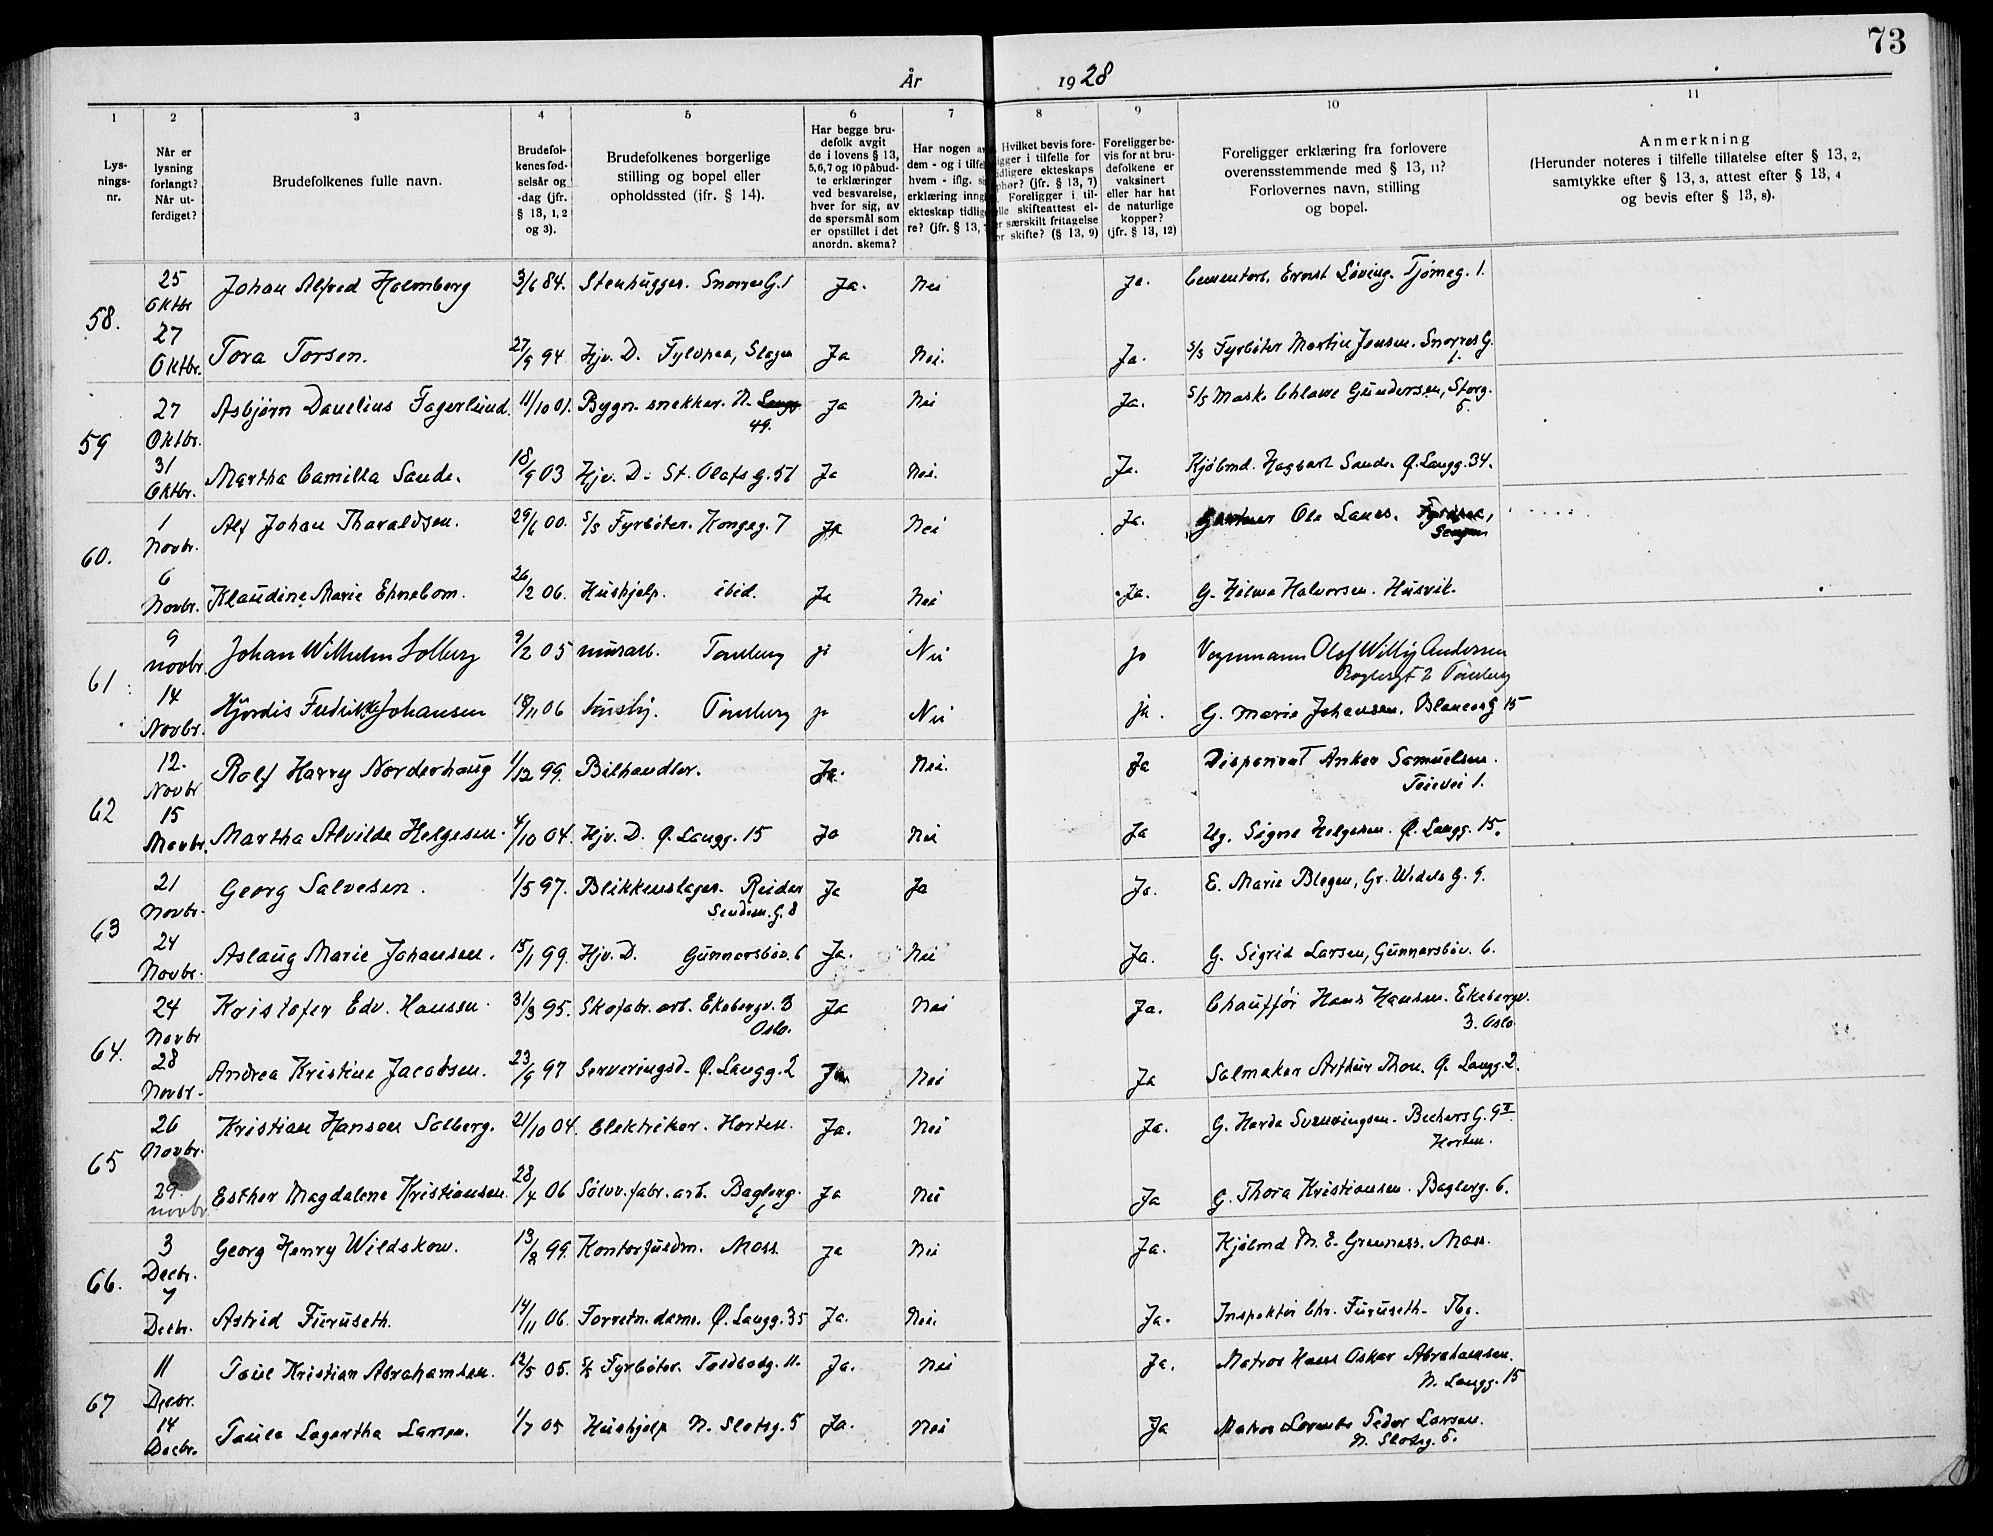 73
År 1928
1 2 3 4 5 6 7 8 9 10 11
Lysningsnr.
Når er lysning forlangt? Når utferdiget?
Brudefolkenes fulle navn.
Brudefolkenes fødselsår og -dag (jfr. § 13, 1, 2 og 3).
Brudefolkenes borgerlige stilling og bopel eller opholdssted (jfr. § 14).
Har begge brudefolk avgit de i lovens § 13, 5, 6, 7 og 10 påbudte erklæringer ved besvarelse, hver for sig, av de spørsmål som er opstillet i det anordn. skema?
Har nogen av dem - og i tilfelle hvem - iflg. erklæring inngått ekteskap tidligere? (jfr. § 13,
Hvilket bevis foreligger i tilfelle for tidligere ekteskaps ophør? (jfr. § 13, 7) Foreligger i tilfelle skifteattest eller særskilt fritagelse for skifte? (§ 13, 9)
Foreligger bevis for at brudefolkene er vaksinert eller har hat de naturlige kopper? (jfr. § 13, 12)
Foreligger erklæring fra forlovere overensstemmende med § 13, 11? Forlovernes navn, stilling og bopel.
Anmerkning (Herunder noteres i tilfelle tillatelse efter § 13, 2, samtykke efter § 13, 3, attest efter § 13, 4 og bevis efter § 13, 8).
58. 25 Oktbr Johan Alfred Holmberg 3/6 84. Stenhugger. Snorres G. 1 Ja. Nei Ja. Cementarb. Ernst Løving. Tjømeg. 1.
27 Oktbr. Tora Torsen. 27/9 94 Hjv. D. Fylpaa, Slagen Ja Nei. Ja. S/S Fyrbøter Martin Jensen. Snorres G. 1.
59 27 Oktbr. Asbjørn Danelius Fagerlund. 11/10 01. Bygn. snekker. N. Langg. 49. Ja Nei Ja. S/S Mask. Gundersen, Storg. 5.
31 Oktbr. Martha Camilla Sande. 18/9 03 Hjv. D. St. Olafs g. 51 Ja Nei. Ja. Kjøbmd. Hagbart Sande. Ø. Langg. 34.
60. 1 Novbr. Alf Johan Tharaldsen. 29/6 00. S/S Fyrbøter. Kongeg. 7 Ja Nei Ja. Gartner Ole Lanes.
6 Novbr. Klaudine Marie Ehnebom. 26/2 06. Hushjelp. ibid. Ja Nei Ja. G. Hilma Halvorsen. Husvik.
61. 9 novbr. Johan Wilhelm Solberg 9/2 05 murarb. Tønsberg ja Nei ja Vognmann Olof Willy Andersen
Baglergt 2 Tønsberg
14 Novbr. Hjørdis Fredrikke Johansen 18/11 06 Tønsberg ja Nei ja. G. Marie Johansen. 15
62 12. Novbr Rolf Harry Norderhaug 1/12 99. Bilhandler. Ja. Nei. Ja Disponent Anker Samuelsen.
Teievei 1.
15 Novbr. Martha Alvilde Helgesen. 4/10 04. Hjv. D. Ø. Langg. 15 Ja Nei Ja Ug. Signe Helgesen. Ø. Langg. 15.
63 21 Novbr. Georg Salvesen. 1/5 97. Blikkenslager. Reidar Sendem. G. 8 Ja Ja Ja. E. Marie Blegen, Gr. Wedels G. 9.
24 Novbr. Aslaug Marie Johansen. 15/1 99. Hjv. D. Gunnarsbøv. 6 Ja. Nei Ja. G. Sigrid Larsen, Gunnarsbøv. 6.
64. 24 Novbr Kristofer Edv. Hansen. 31/3 95. Skofabr. arb. Ekebergv. 3 Oslo. Ja Nei Ja. Chauffør Hans Hansen. Ekebergv.
3. Oslo
28 Novbr. Andrea Kristine Jacobsen. 23/9 97 Serveringsd. Ø. Langg. 2 Ja Nei Ja Salmaker Arthur Thon. Ø. Langg. 2.
65 26 Novbr. Kristian Hansen Solberg. 21/10 04. Elektriker. Horten. Ja. Nei Ja. G. Harda Svenningsen. Bechers G. 9 II
Horten.
29. novbr Esther Magdalene Kristiansen. 28/4 06 Sølvv. fabr. arb. Baglerg. 6 Ja Nei Ja G. Thora Kristiansen. Baglerg. 6.
66. 3 Decbr. Georg Henry Wildskow. 13/8 99. Kontorfuldm. Moss. Ja Nei Ja. Kjøbmd M. E. Greness. Moss.
7 Decbr. Astrid Furuseth. 14/11 06. Forretn. dame. Ø. Langg. 35 Ja. Nei. Ja. Inspektør Chr. Furuseth. Tbg.
67 11 Decbr. Paul Kristian Abrahamsen. 12/5 05. S/S Fyrbøter. Toldbodg. 11. Ja. Nei Ja. Matros Hans Oskar Abrahamsen.
N. Langg. 15
14 Decbr. Paula Lagertha Larsen. 1/7 05 Hushjelp N. Slotsg. 5 Ja. Nei Ja Matros Lorentz Peder Larsen.
N. Slotsg. 5.